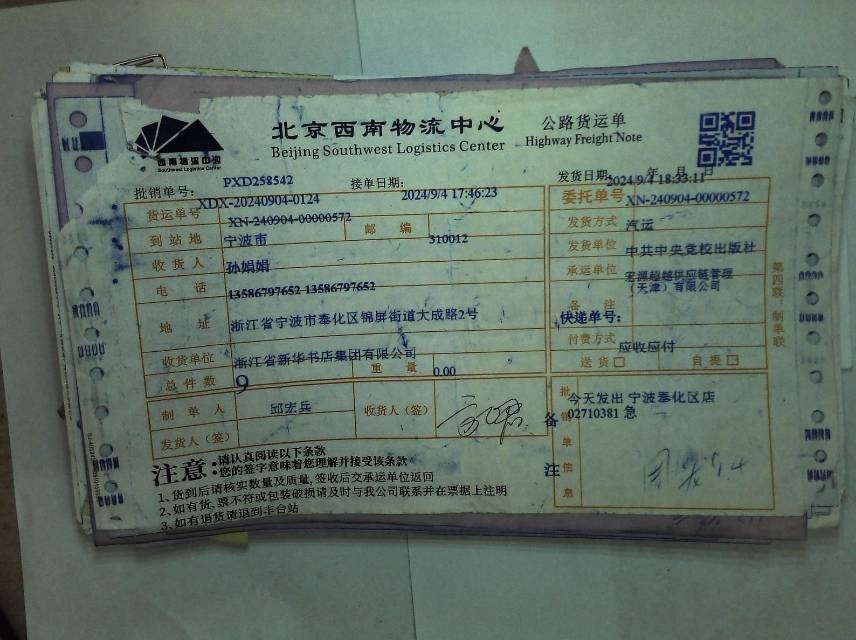 北京西南物流中心
公路货运单
Beijing Southwest Logistics Center
Highway Freight Note
西南物流中心
Southwest Logistics Center
批销单号: PXD258542
接单日期: 2024/9/4 17:46:23
发货日期: 年 月 日 2024/9/4 18:33:11
XDX-20240904-0124
货运单号 XN-240904-00000572
委托单号 XN-240904-00000572
到站地 宁波市
邮编 310012
发货方式 汽运
收货人 孙娟娟
发货单位 中共中央党校出版社
电话 13586797652 13586797652
承运单位 宏源超越供应链管理
(天津)有限公司
备注
地址 浙江省宁波市奉化区锦屏街道大成路2号
快递单号:
收货单位 浙江省新华书店集团有限公司
付费方式 应收应付
总件数 9
重量 0.00
送货 □ 自提 □
制单人 邱宏兵
收货人(签)
发货人(签)
备注
批销单信息
今天发出 宁波奉化区店
02710381 急
第四联:制单联
注意: 请认真阅读以下条款
您的签字意味着您理解并接受该条款
1、货到后请核实数量及质量,签收后交承运单位返回
2、如有货、票不符或包装破损请及时与我公司联系并在票据上注明
3、如有退货请退到丰台站